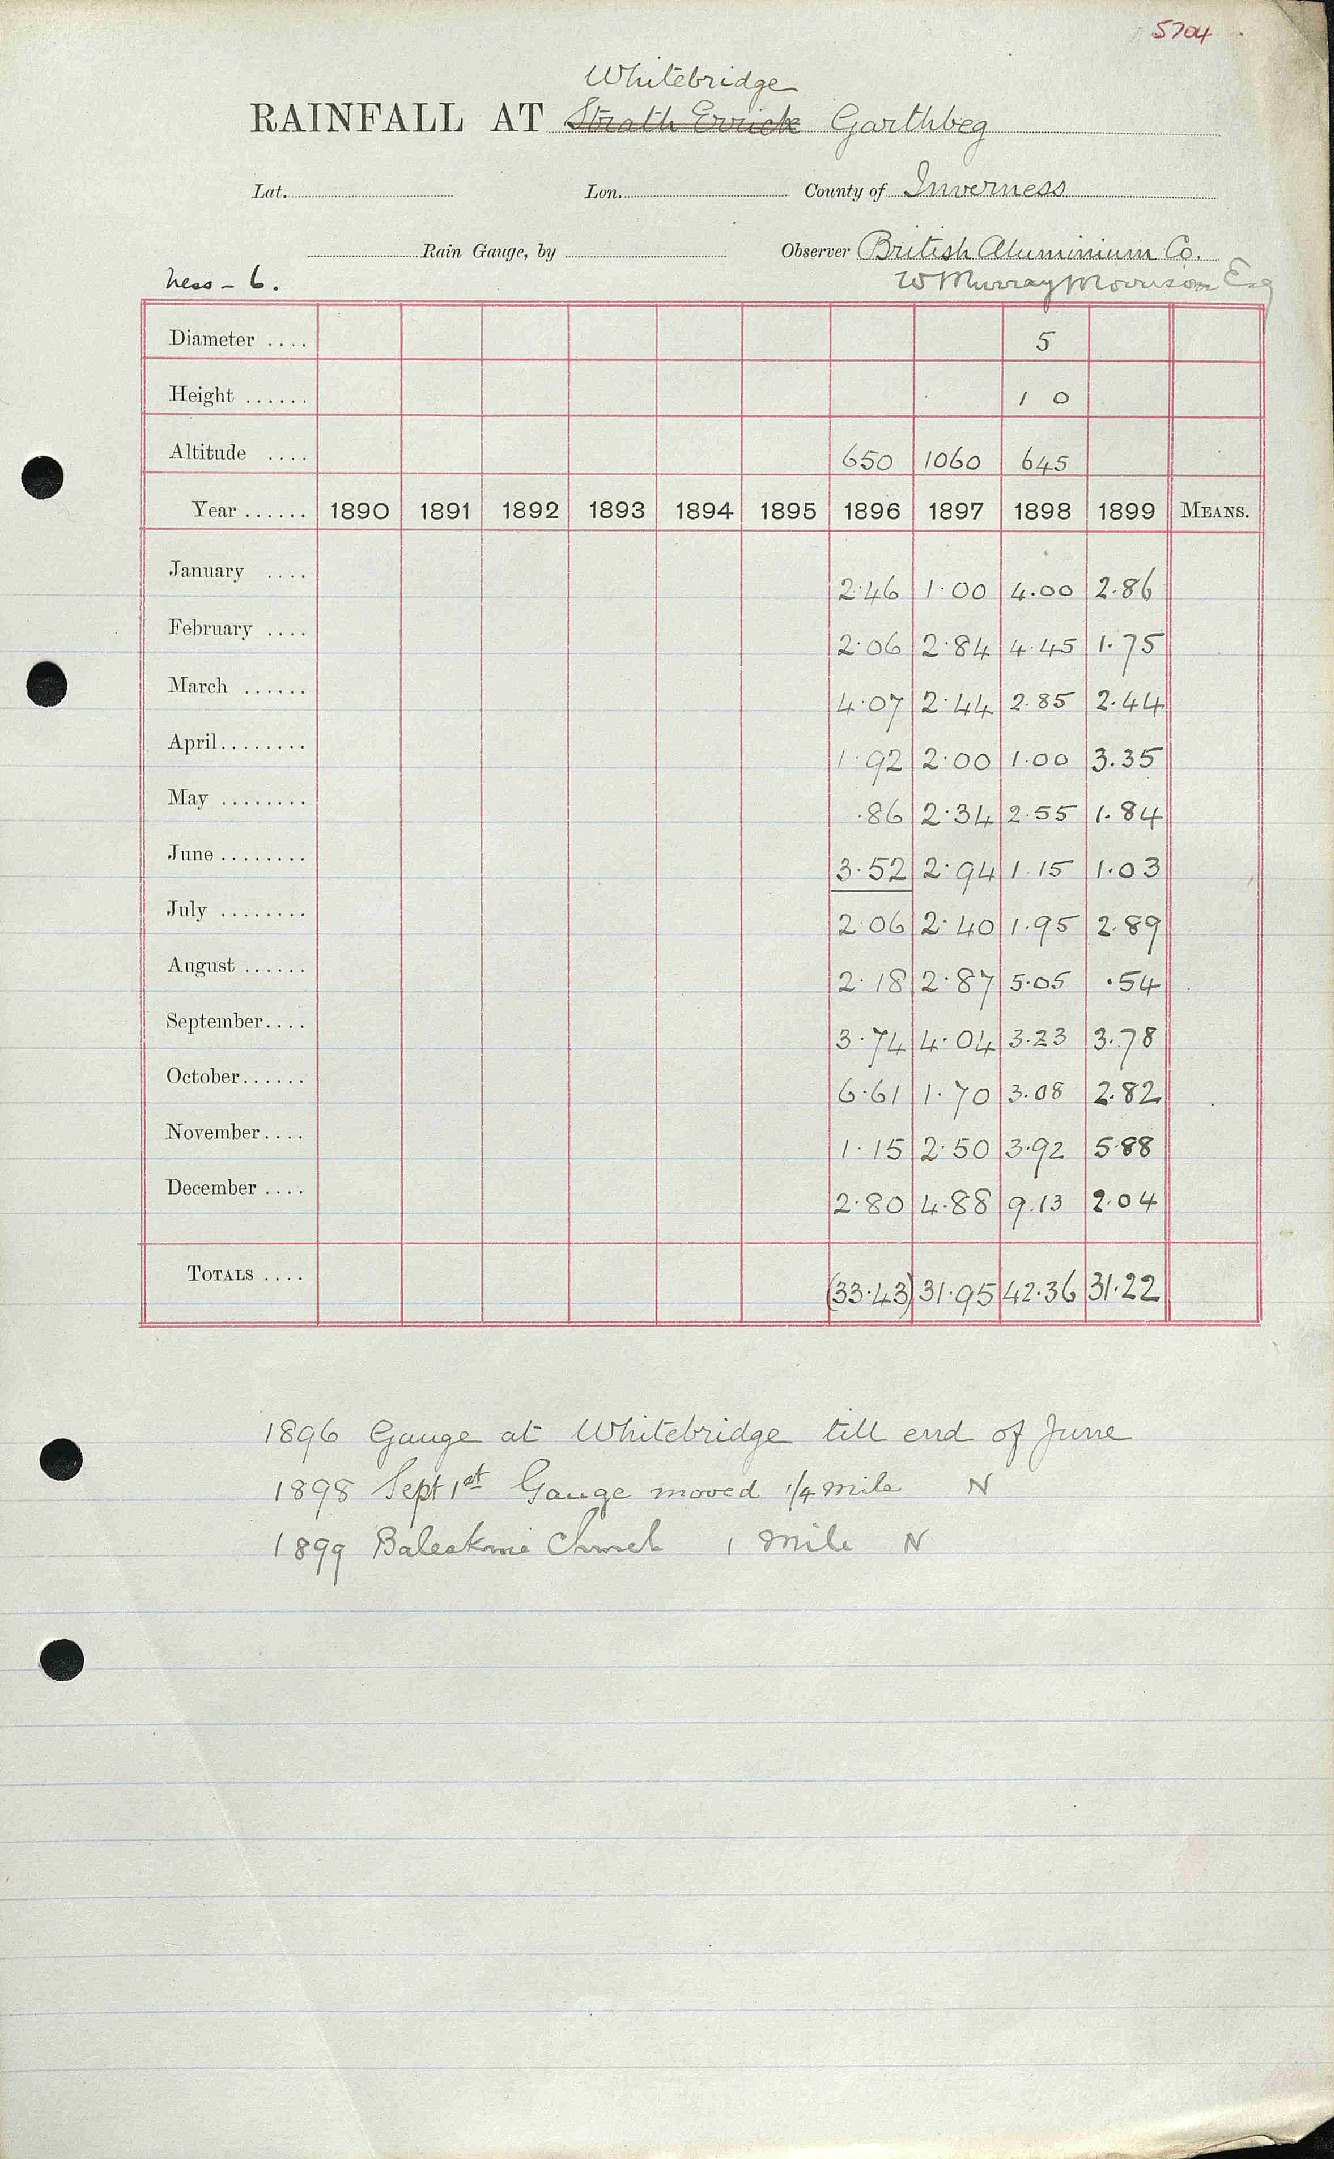 5704
Whitebridge
RAINFALL AT Strath Errick Garthbeg
Lat. Lon. County of Inverness
Rain Gauge, by Observer British Aluminium Co.
Ness - 6. W Murray Morrison Esq
Diameter .... 5
Height ...... 1 0
Altitude .... 650 1060 645
Year ...... 1890 1891 1892 1893 1894 1895 1896 1897 1898 1899 MEANS.
January .... 2.46 1.00 4.00 2.86
February .... 2.06 2.84 4.45 1.75
March ...... 4.07 2.44 2.85 2.44
April........ 1.92 2.00 1.00 3.35
May ........ .86 2.34 2.55 1.84
June ........ 3.52 2.94 1.15 1.03
July ........ 2.06 2.40 1.95 2.89
August ...... 2.18 2.87 5.05 .54
September.... 3.74 4.04 3.23 3.78
October...... 6.61 1.70 3.08 2.82
November.... 1.15 2.50 3.92 5.88
December .... 2.80 4.88 9.13 2.04
TOTALS .... (33.43) 31.95 42.36 31.22
1896 Gauge at Whitebridge till end of June
1898 Sept 1st Gauge moved 1/4 mile N
1899 Boleskine Church 1 mile N